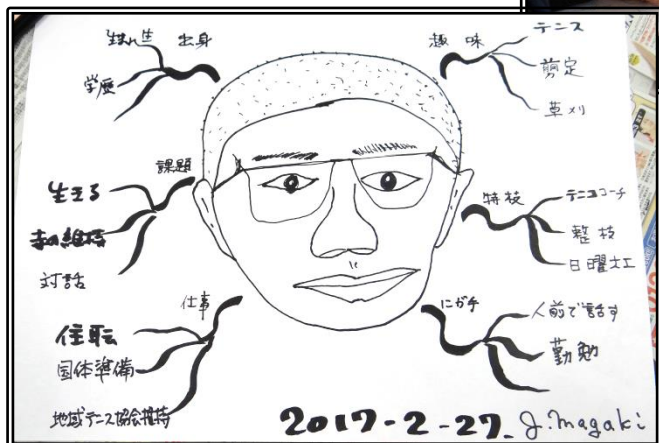 出身
学歴
趣味
テニス
剪定
草刈
課題
生きる
寺の維持
対話
特技
テニスコーチ
整枝
日曜大工
仕事
国体準備
地域テニス協会維持
にが手
人前で話す
勤勉
2017-2-27. J.Magaki